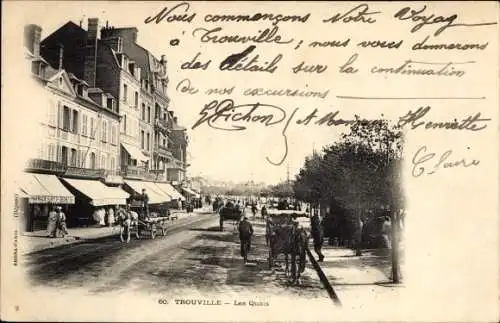 Nous commençons Notre Voyage
à Trouville, nous vous donnerons
des détails sur la continuation
de nos excursions
GPichon Maman Henriette
Claire
60. TROUVILLE — Les Quais